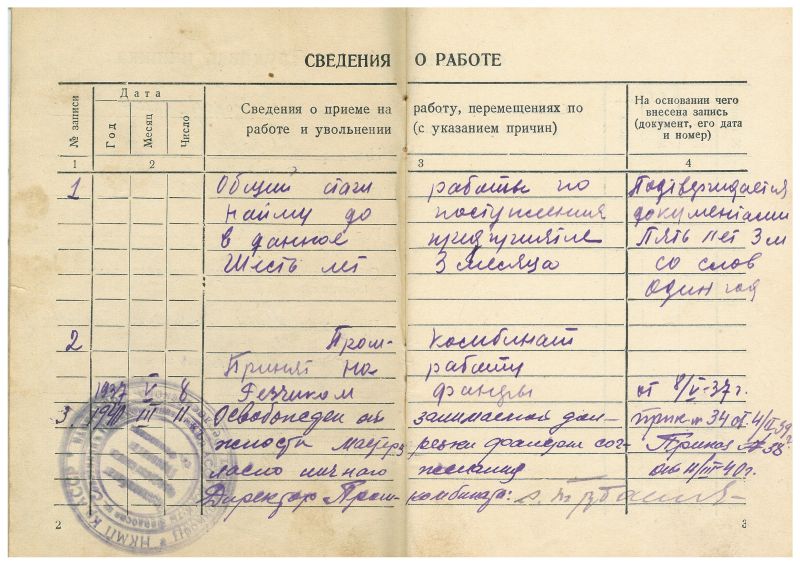 СВЕДЕНИЯ О РАБОТЕ
№ записи
Дата
Год
Месяц
Число
Сведения о приеме на работу, перемещениях по
работе и увольнении (с указанием причин)
На основании чего
внесена запись
(документ, его дата
и номер)
1 2 3 4
1 Общий стаж работы по Подтверждается
найму до поступления документами
в данное предприятие Пять лет 3 м
Шесть лет 3 месяца со слов
один год
2 Пром- комбинат
Принят на работу
1937 V 8 Резчиком фанеры от 8/V-37г.
3 1940 III 11 Освобожден от занимаемой дол- прик. № 34 от 4/II 39г
жности мастера резки фанеры сог- Приказ № 38
ласно личного желания от 11/III-40г.
Директор Пром- комбината:
НКМП КАССР
2
3